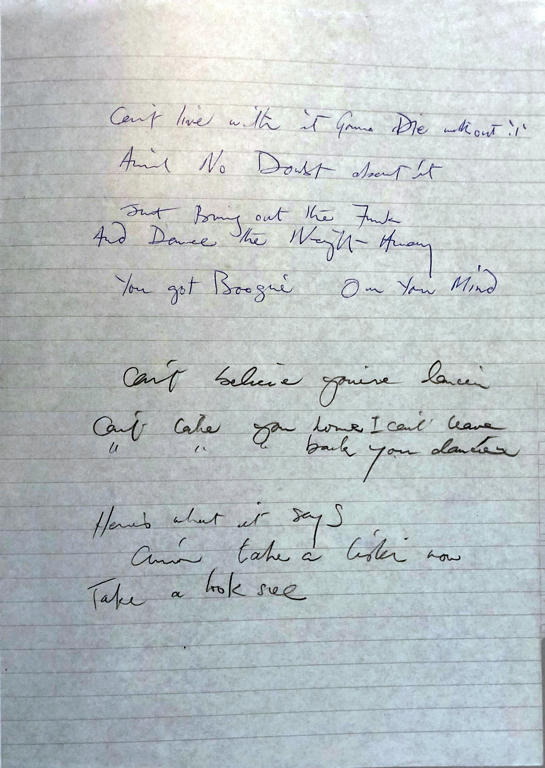 Can't live with it Gonna Die without it
Ain't No Doubt about it
Just Bring out the Funk
And Dance the Night Away
You got Boogie On Your Mind
Can't believe you're
Can't take you home I can't leave
" " " back you
Here's what it says
take a listen now
Take a look see